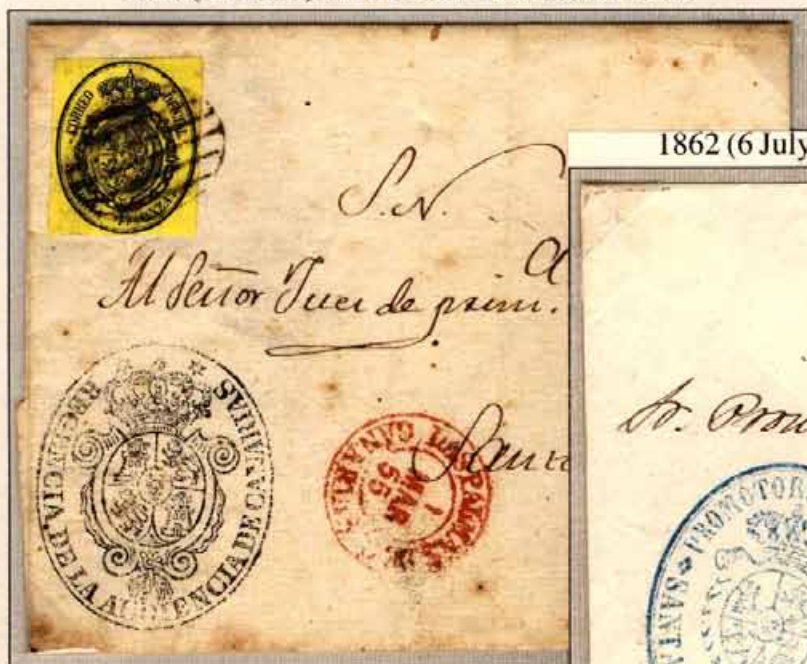 CORREO OFICIAL
ONZA
1862 (6 July
S. N.
Al Señor Juez de prim.
REGENCIA DE LA AUDIENCIA DE CANARIAS
PALMAS
CANARIAS
1
MAR
55
Sr. Prom
SANTA
PROMOTOR